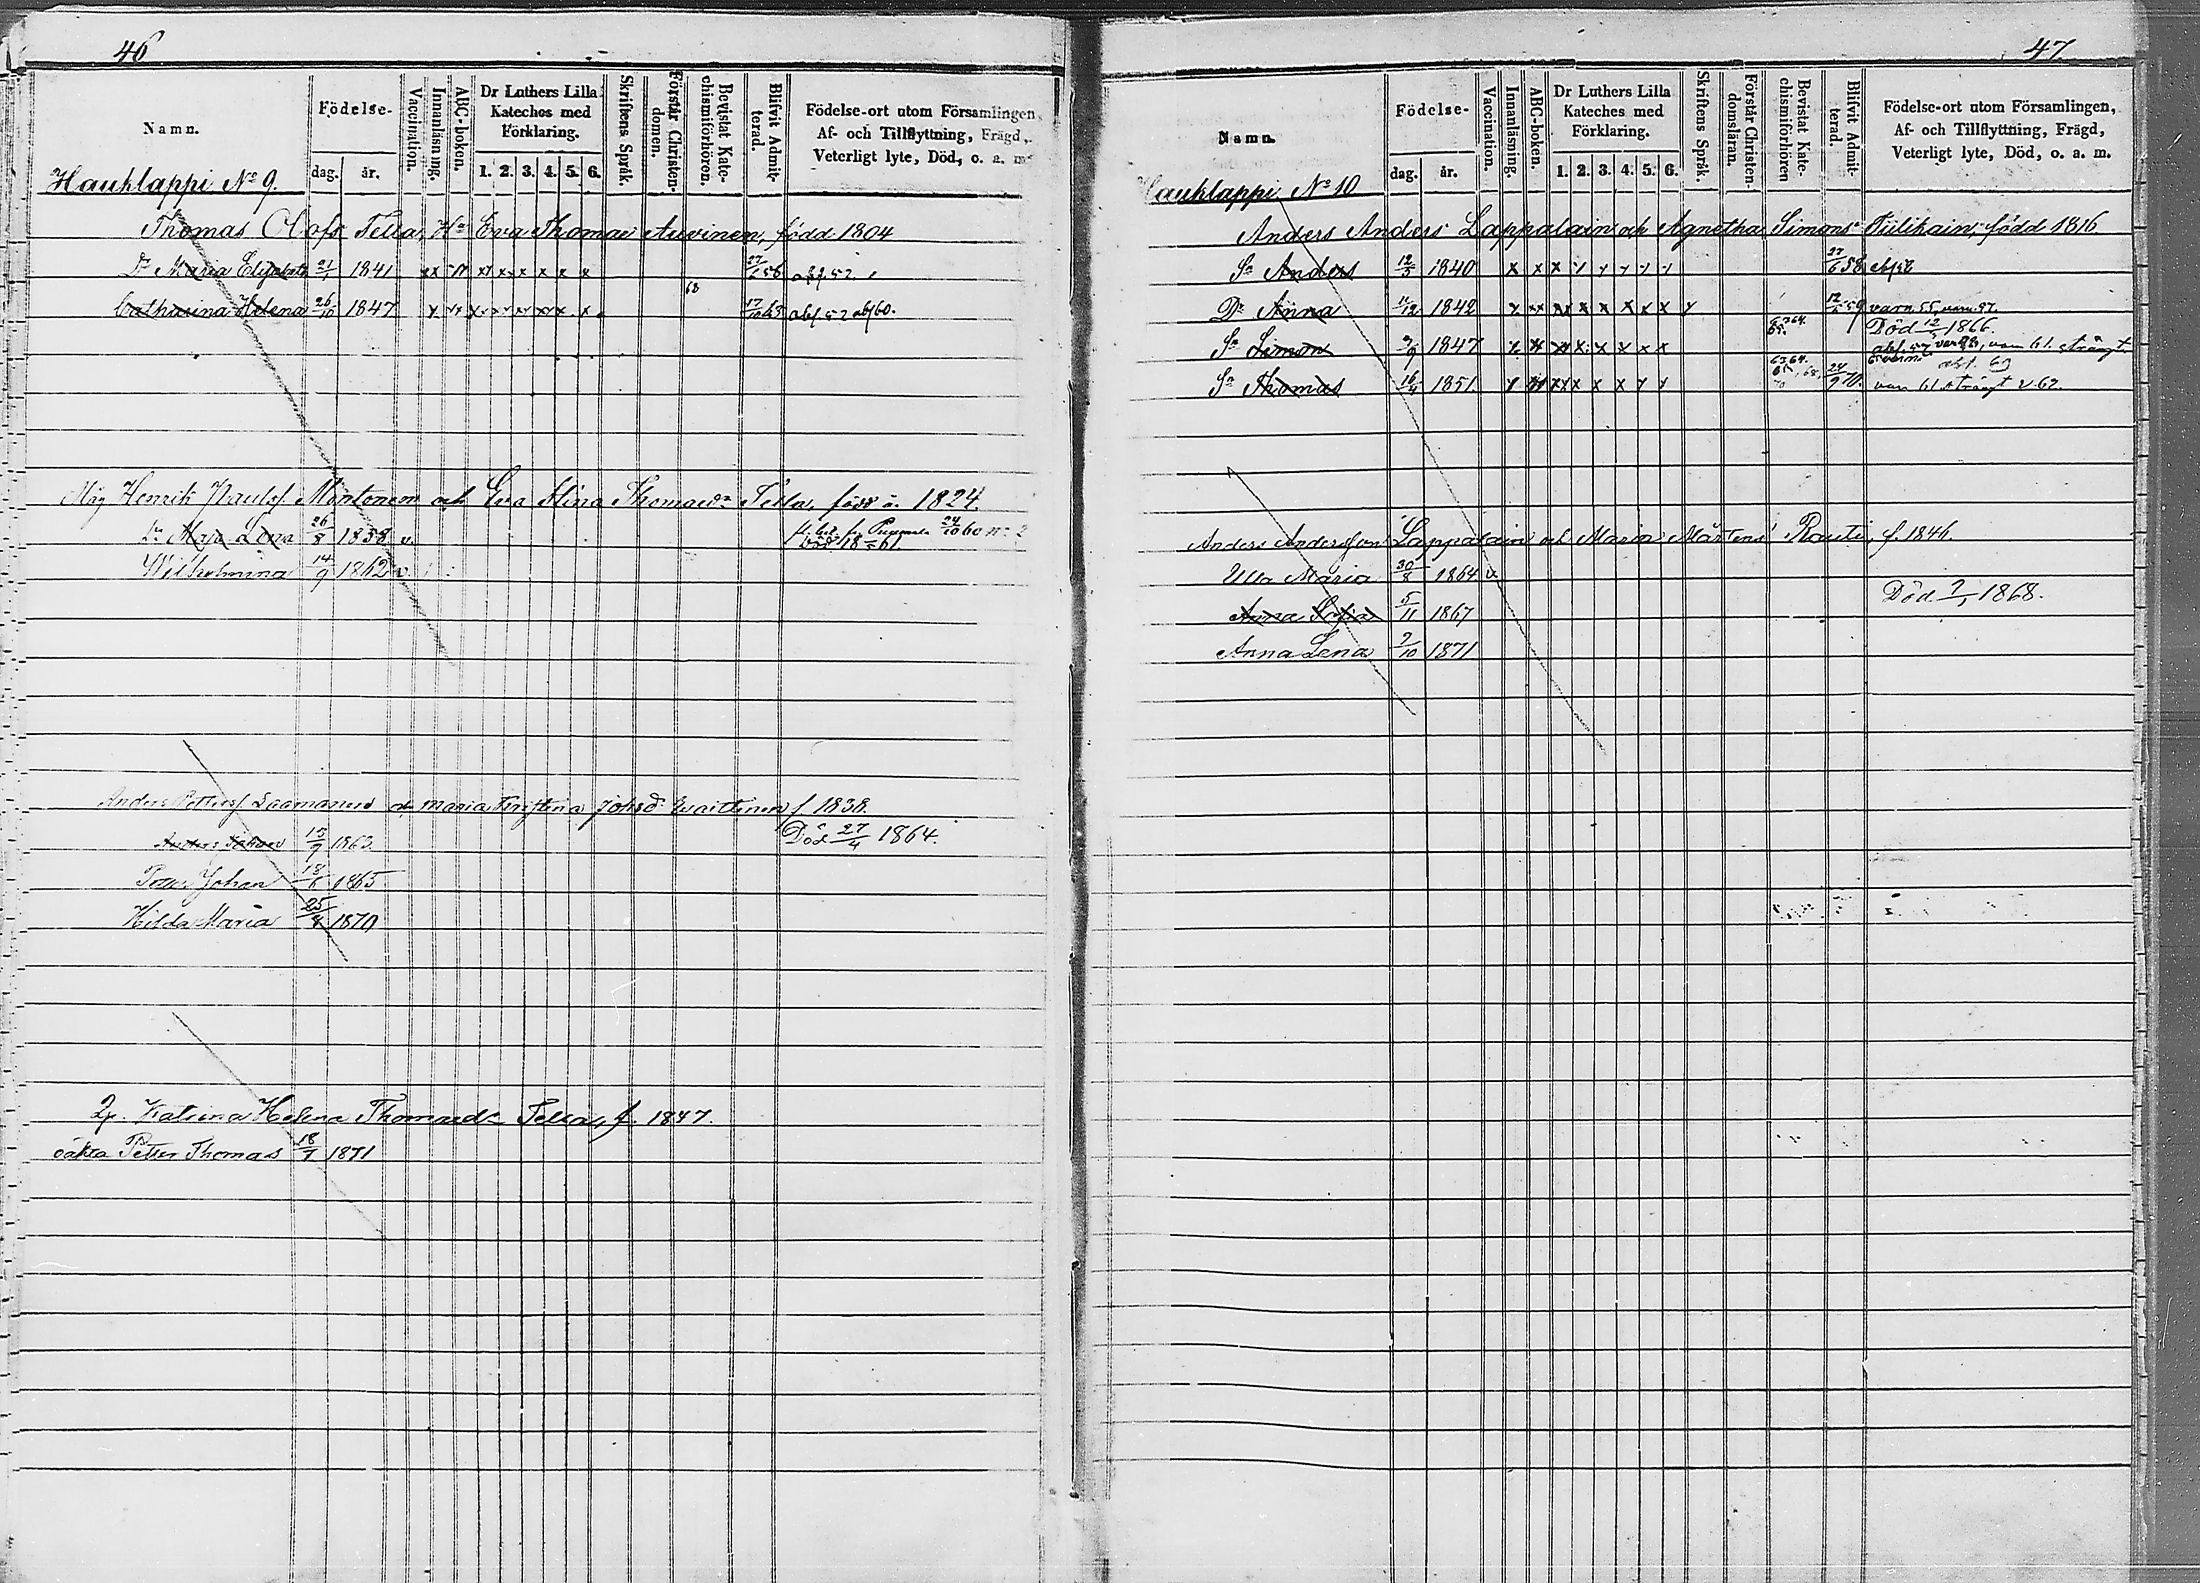 46
Namn.
Födelse-
dag.
år.
Vaccination.
Innanläsning.
ABC-boken.
Dr Luthers Lilla
Kateches med
Förklaring.
1. 2. 3. 4. 5. 6.
Skriftens Språk.
Förstår Christen-
domen.
Bevistat Kate-
chismiförhören.
Blifvit Admit-
terad.
Födelse-ort utom Församlingen,
Af- och Tillflyttning, Frägd,
Veterligt lyte, Död, o. a. m.
Hauklappi No 9.
Thomas Olofs Tella, Hu Eva Thomae Auvinen, född 1804
Dr Maria Elisabeth 21/1 1841 x x x x x x 27/6 58
Catharina Helena 26/10 1847 x x x x x x 63 17/10 63 abs 52 abs 60.
Måg Henrik Paulss Möntönen och Eva Stina Thomaedr Tella, född å. 1824.
Dr Maja Lena 26/8 1838 v Död 18 61.
Wilhelmina 14/9 1862 v
Anders Petterss Laamanen och Maria Kristina Johsdr f. 1838.
Anders Johan 15/9 1863 Död 27/4 1864.
Petter Johan 18/6 1865
Hilda Maria 25/8 1870
Katrina Helena Thomaedr Tella, f. 1847.
oäkta Petter Thomas 18/7 1871
47.
Namn.
Födelse-
dag.
år.
Vaccination.
Innanläsning.
ABC-boken.
Dr Luthers Lilla
Kateches med
Förklaring.
1. 2. 3. 4. 5. 6.
Skriftens Språk.
Förstår Christen-
domsläran.
Bevistat Kate-
chismiförhören
Blifvit Admit-
terad.
Födelse-ort utom Församlingen,
Af- och Tillflyttning, Frägd,
Veterligt lyte, Död, o. a. m.
Hauklappi No 10
Anders Anders Lappalain och Agnetha Simons Tiilikain, född 1816
Sn Anders 12/3 1840 x x x 27/6 58
Dr Anna 11/12 1842 x x x x x x 12/6 59 varn. 55,
Död 12/ 1866.
Sn Simon 9/9 1847 x x x x x x
Sn Thomas 16/4 1851 x x x x 24/9 70. varn 61 strängt v 62.
Anders Andersson Lappalain och Maria Mårtens Rauti, f. 1846.
Ulla Maria 30/8 1864 v
Anna Sofia 5/11 1867 Död 7/1 1868.
Anna Lena 7/10 1871